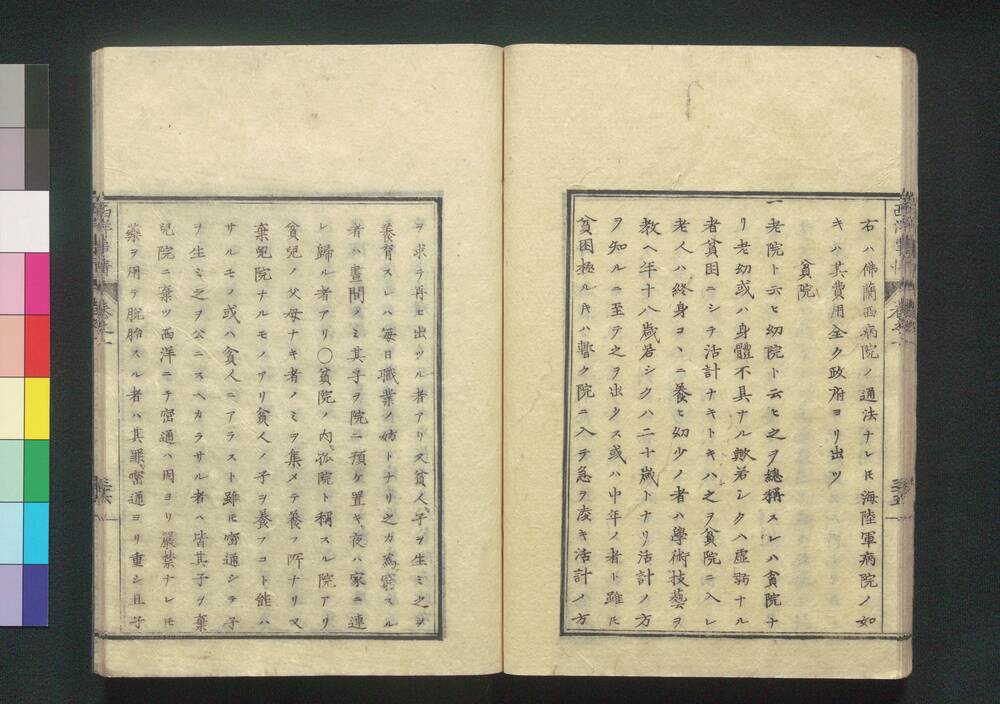 右ハ佛蘭西病院ノ通法ナレ𪜈海陸軍病院ノ如
キハ其費用全ク政府ヨリ出ツ
貧院
一老院ト云ヒ幼院ト云ヒ之ヲ總稱スレハ貧院ナ
リ老幼或ハ身體不具ナル歟若シクハ虚弱ナル
者貧困ニシテ活計ナキトキハ之ヲ貧院ニ入レ
老人ハ終身コヽニ養ヒ幼少ノ者ハ學術技藝ヲ
教ヘ年十八歳若シクハ二十歳トナリ活計ノ方
ヲ知ルニ至テ之ヲ出タス或ハ中年ノ者ト雖𪜈
貧困極ルキハ暫ク院ニ入テ急ヲ凌キ活計ノ方
ヲ求テ再ヒ出ツル者アリ又貧人、子ヲ生ミ之ヲ
養育スレハ毎日職業ノ妨トナリ之カ爲、窮スル
者ハ晝間ノミ其子ヲ院ニ預ケ置キ、夜ハ家ニ連
レ歸ル者アリ〇貧院ノ内、孤院ト稱スル院アリ
貧兒ノ父母ナキ者ノミヲ集メテ養フ所ナリ又
棄兒院ナルモノアリ貧人ノ子ヲ養フコト能ハ
サルモノ或ハ貧人ニアラスト雖𪜈密通シテ子
ヲ生ミ之ヲ公ニスヘカラサル者ハ皆其子ヲ棄
兒院ニ棄ツ西洋ニテ密通ハ固ヨリ嚴禁ナレ𪜈
藥ヲ用テ脱胎スル者ハ其罪、密通ヨリ重シ且子